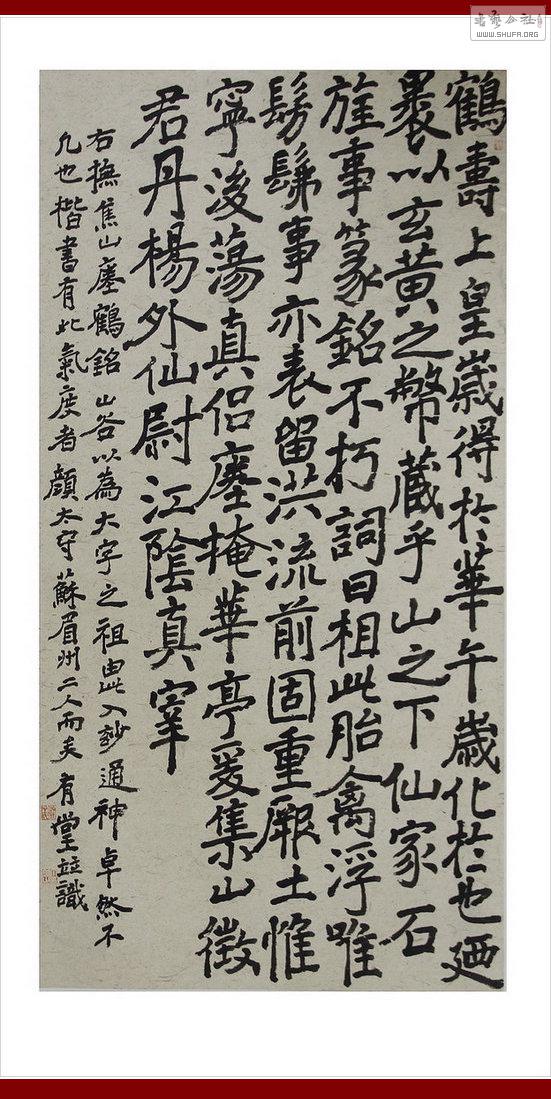 書藝公社
WWW.SHUFA.ORG
鶴壽上皇歲得於華午歲化於也廼
裹以玄黃之幣藏乎山之下仙家石
旌事篆銘不朽詞曰相此胎禽浮唯
髣髴事亦表留洪流前固重厰土惟
寧後蕩真侶瘞掩華亭爰集山徵
君丹楊外仙尉江陰真宰
右撫焦山瘞鶴銘山谷以為大字之祖由此入妙通神卓然不
凡也楷書有此氣度者顏太守蘇眉州二人而矣有堂並識